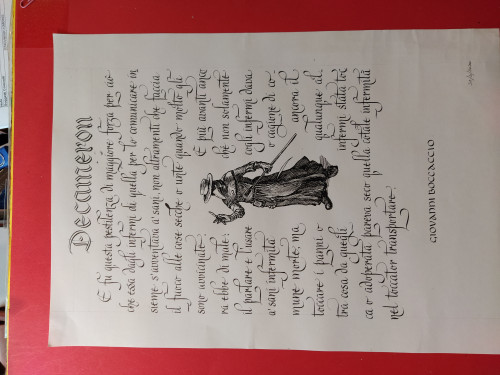 Decameron
E fu questa pestilenza di maggiore forza per ciò
che essa dagli infermi di quella per lo comunicare in
sieme s'aventava a' sani, non altramenti che faccia
il fuoco alle cose secche o unte quando molto gli
sono avvicinate. E più avanti anco
ra ebbe di male: che non solamente
il parlare e l'usare cogli infermi dava
a' sani infermità o cagione di co
mune morte, ma ancora il
toccare i panni o qualunque al
tra cosa da quegli infermi stata toc
ca o adoperata pareva seco quella cotale infermità
nel toccator transportare.
GIOVANNI BOCCACCIO